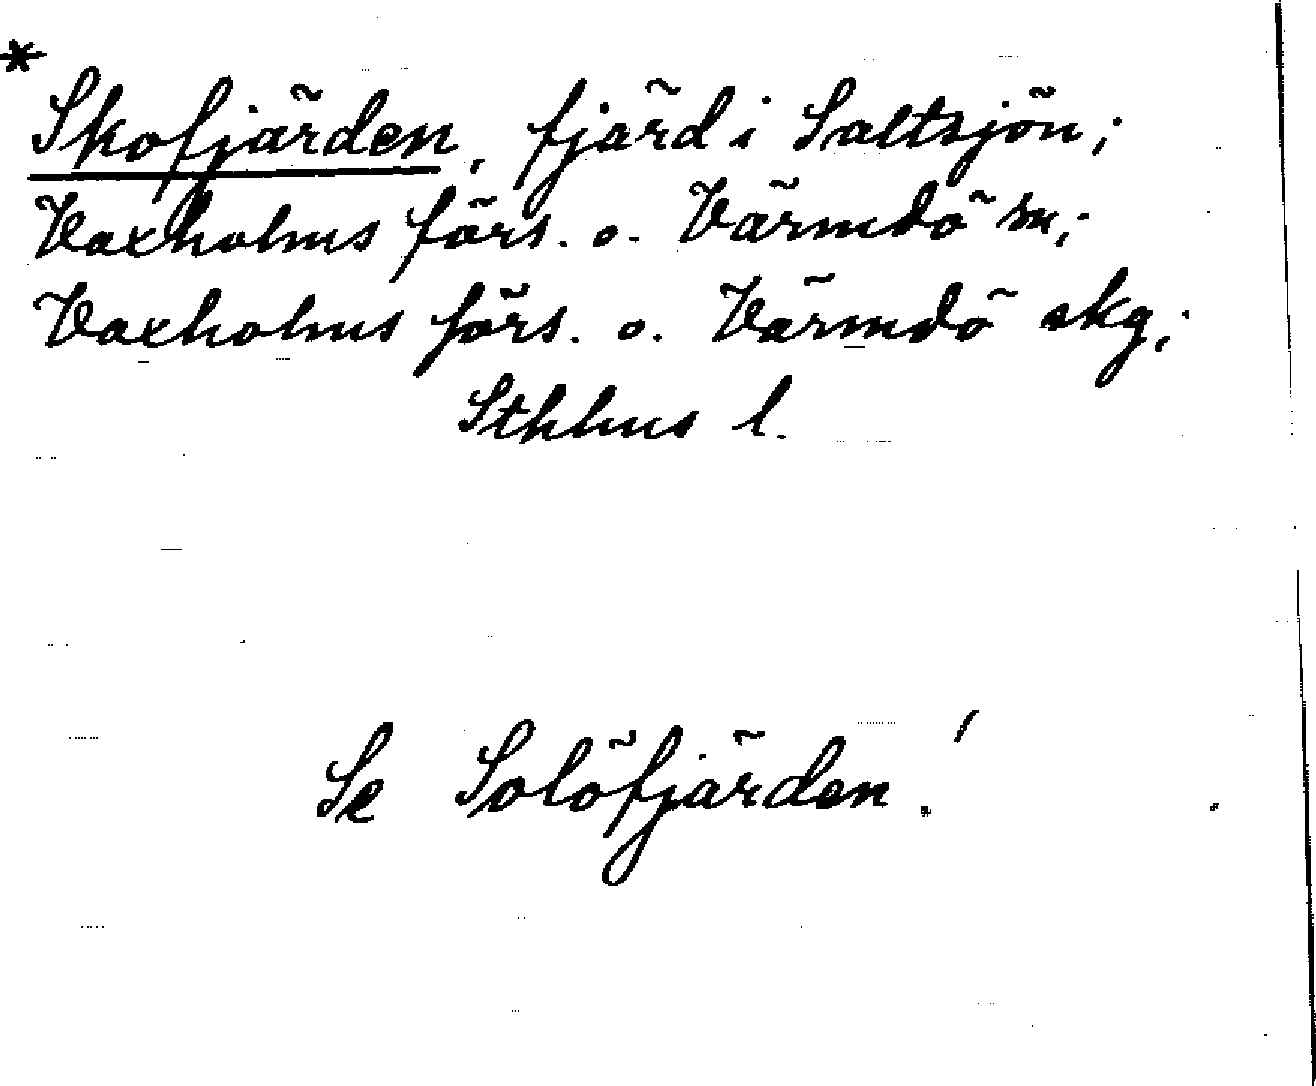 *
Skofjärden, fjärd i Saltsjön;
Vaxholms förs. o. Värmdö sn;
Vaxholms förs. o. Värmdö skg;
Sthlms l.
Se Solöfjärden!